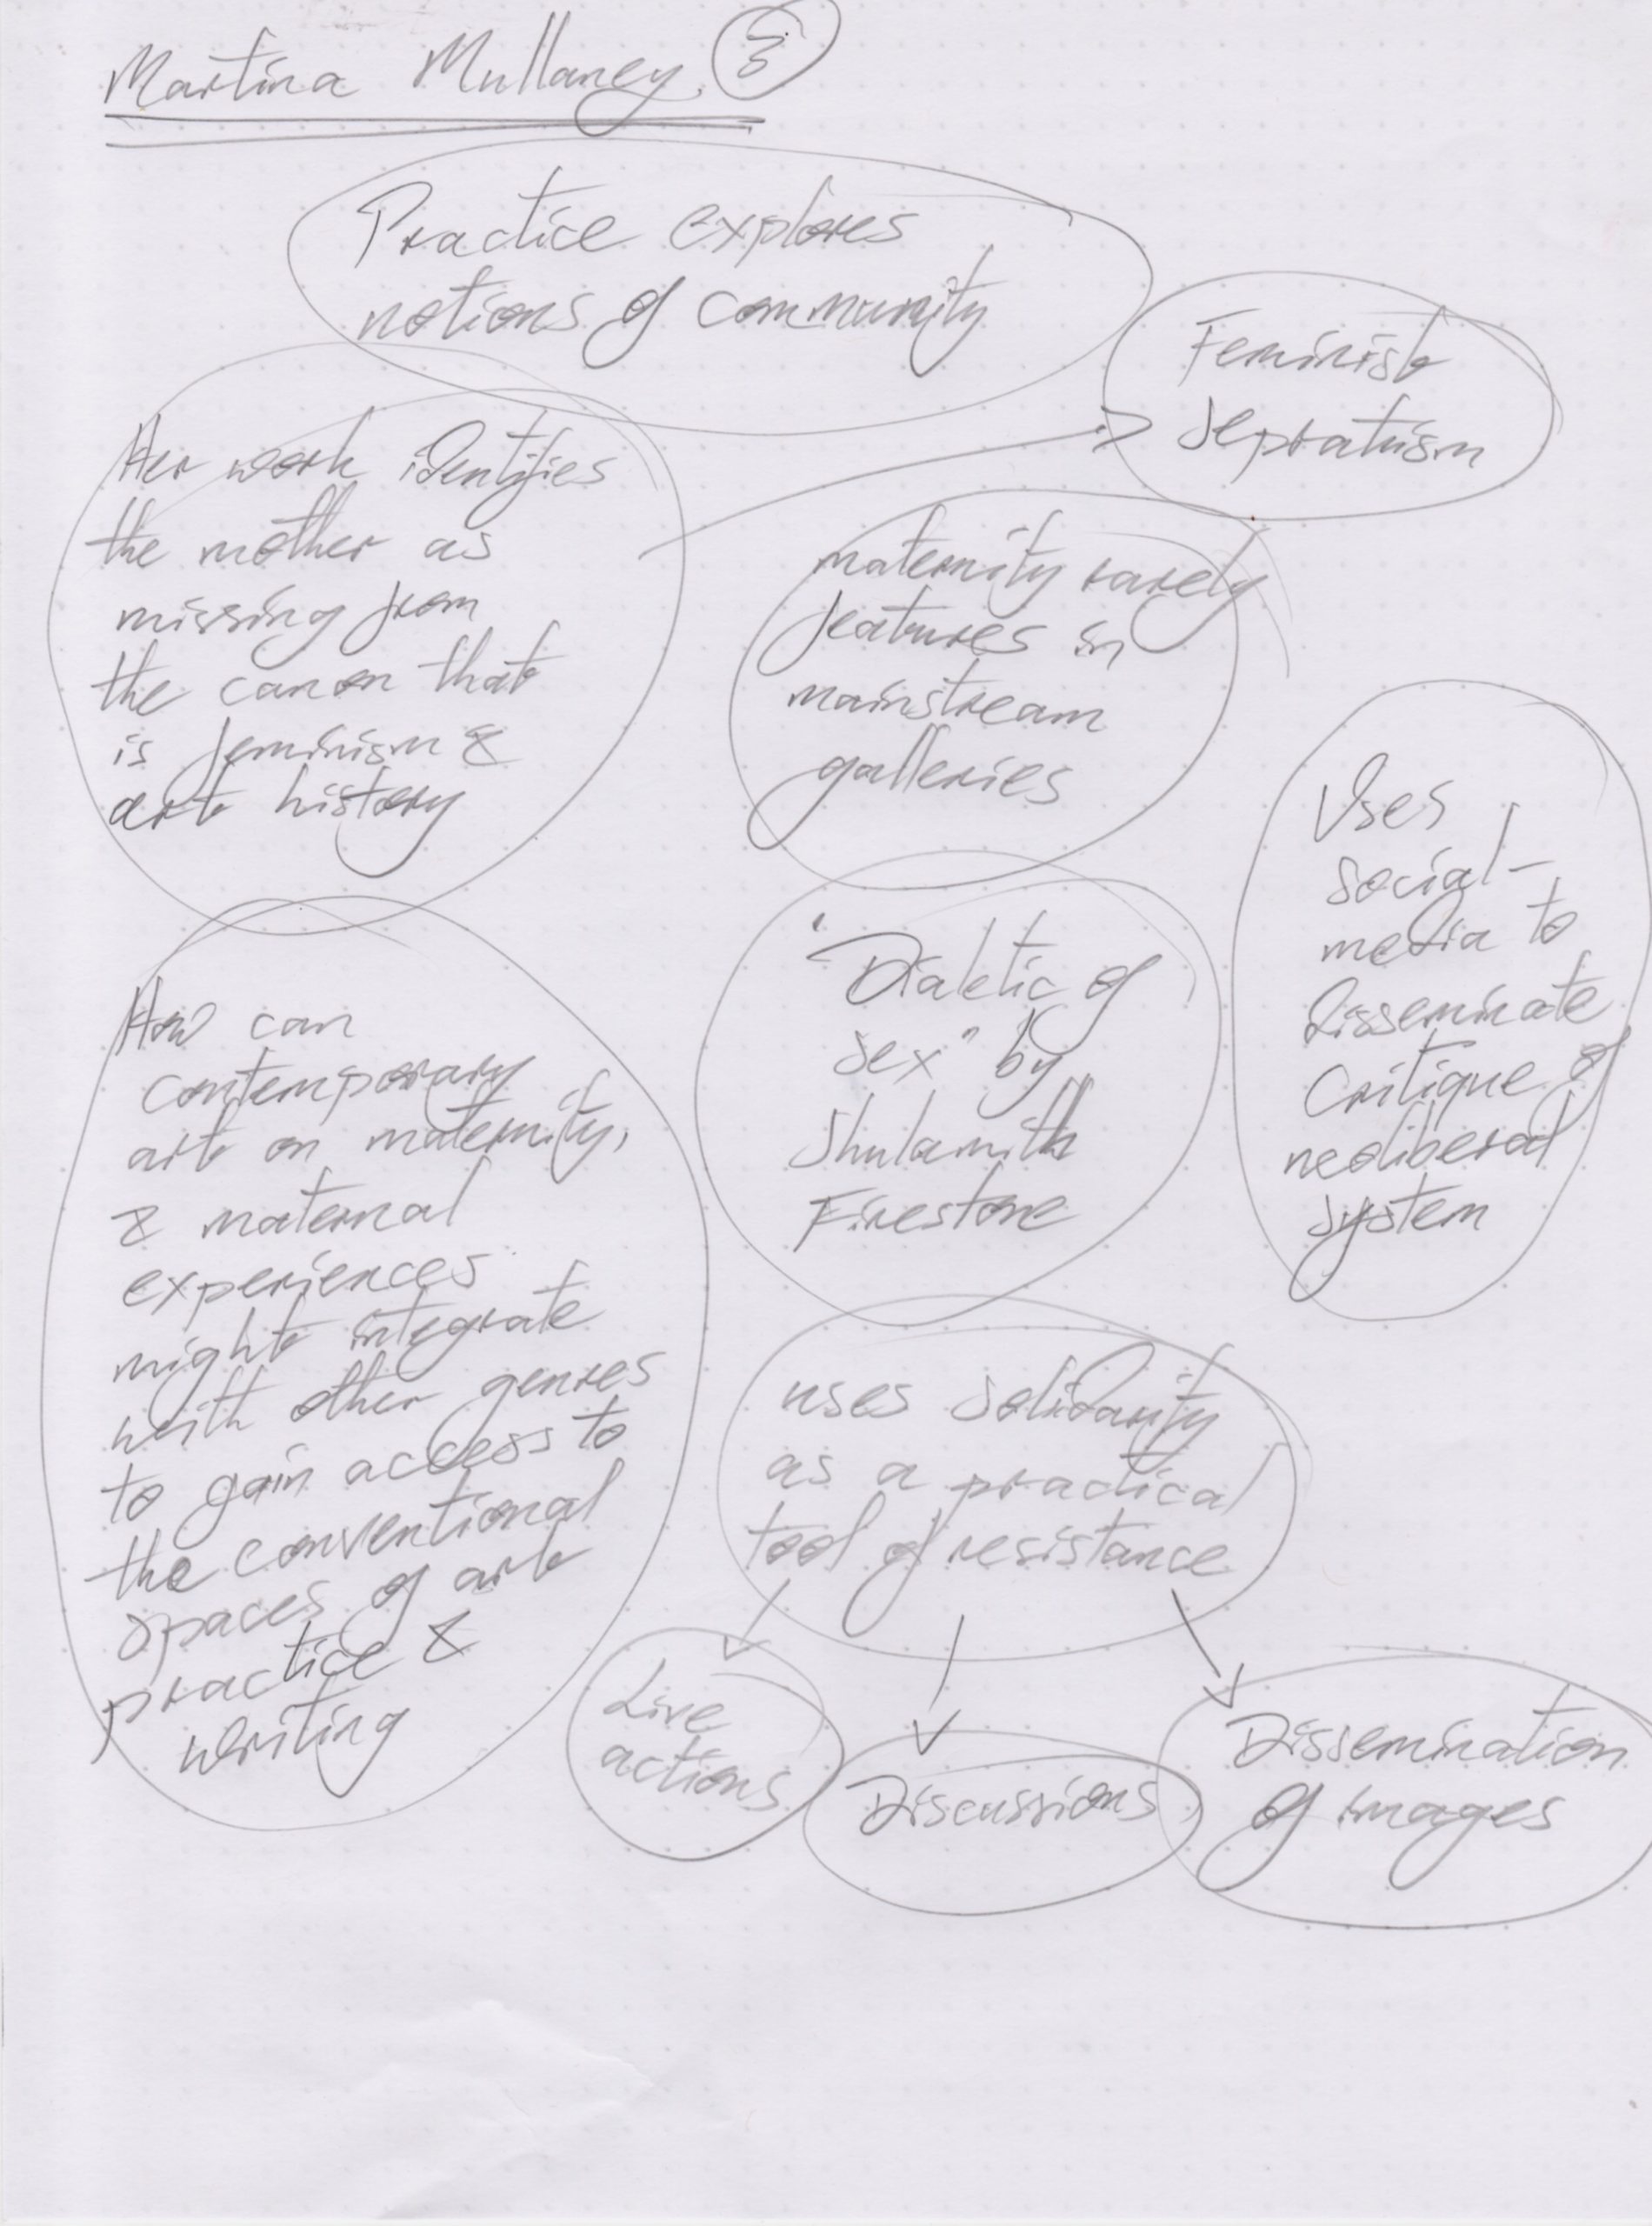 Martina Mullaney. 3
Practice explores
notions of community
Feminist
Sepratuism
Her work identifies
the mother as
missing from
the canon that
is feminism &
art history
maternity rarely
features in
mainstream
galleries
Uses
social-
media to
disseminate
critique of
neoliberal
system
"Dialetic of
Sex" by
Shulamith
Firestone
How can
contemporary
art on maternity,
& maternal
experiences
might integrate
with other genres
to gain access to
the conventional
spaces of art
practice &
writing
uses solidarity
as a practical
tool of resistance
Live
actions
Discussions
Dissemination
of images